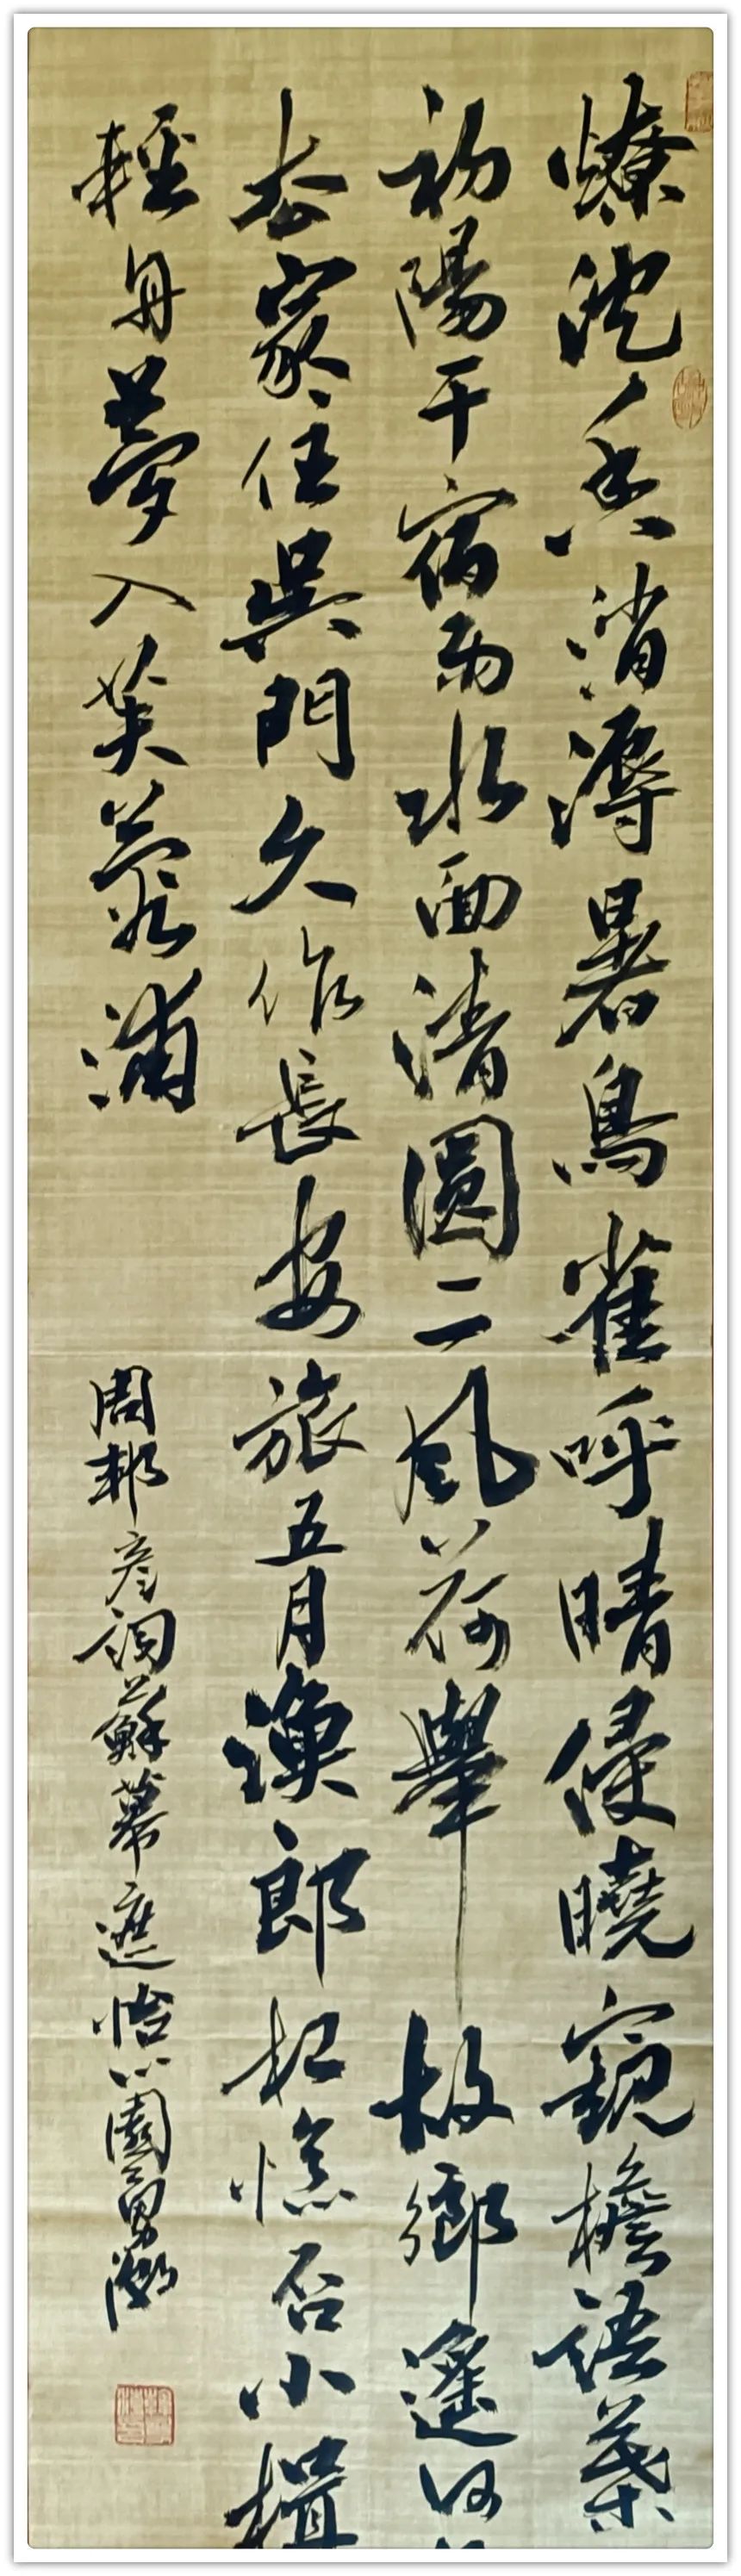 燎沈香消溽暑鳥雀呼晴侵曉窺檐語葉
初陽干宿雨水面清圓一一風荷舉故鄉遙何
去家住吳門久作長安旅五月漁郎相憶否小楫
輕舟夢入芙蓉浦
周邦彥詞蘇幕遮怡心園